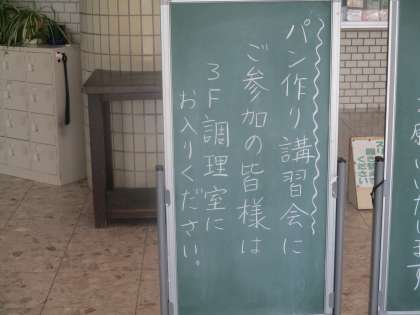 パン作り講習会に
ご参加の皆様は
3F調理室に
お入りください。
願いします